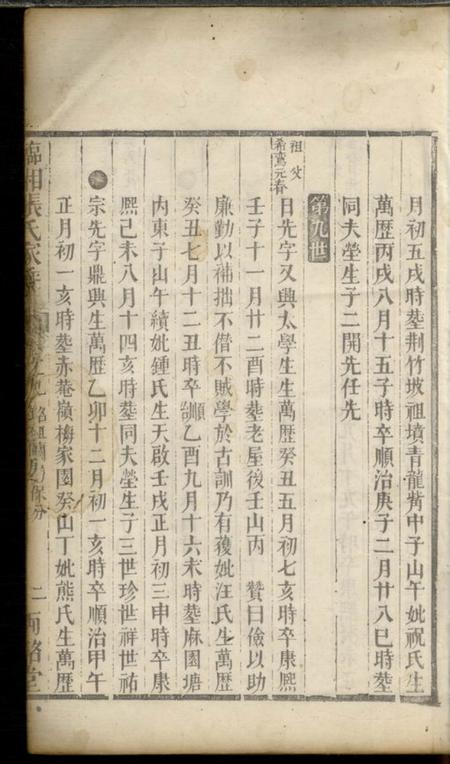 月初五戌時塟荆竹坡祖墳青龍觜中子山午妣祝氏生
萬歷丙戌八月十五子時卒順治庚子二月廿八巳時塟
同夫塋生子二開先任先
第九世
祖父
希鸞元春
日先字又興太學生生萬歷癸丑五月初七亥時卒康熙
壬子十一月廿二酉時塟老屋後壬山丙 贊曰儉以助
廉勤以補拙不僭不賊學於古訓乃有獲妣汪氏生萬歷
癸丑七月十二丑時卒順乙酉九月十六未時塟麻園塘
内東子山午續妣鍾氏生天啟壬戌正月初三申時卒康
熙己未八月十四亥時塟同夫塋生子三世珍世祥世祐
宗先字鼎興生萬歷乙卯十二月初一亥時卒順治甲午
正月初一亥時塟赤菴嶺梅家園癸山丁妣熊氏生萬歷
臨湘張氏家 二